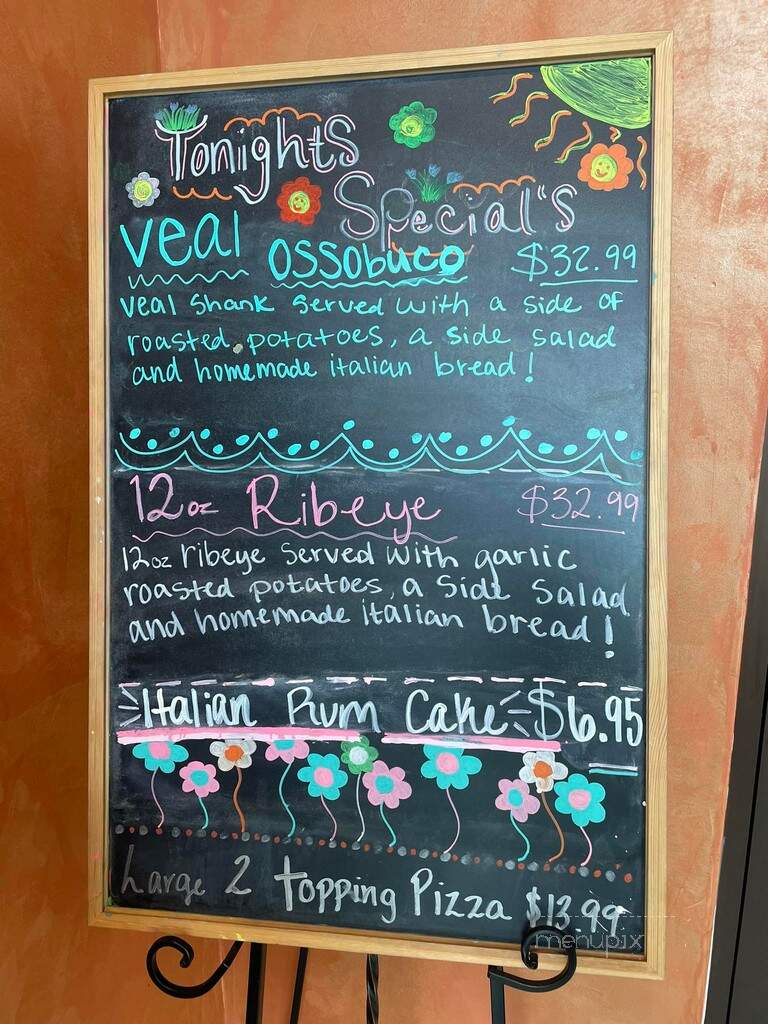 Tonights
Special's
Veal Ossobuco $32.99
veal shank served with a side of
roasted potatoes, a side salad
and homemade italian bread!
12oz Ribeye $32.99
12oz ribeye served with garlic
roasted potatoes, a side salad
and homemade italian bread!
Italian Rum Cake $6.95
Large 2 topping Pizza $13.99
menupix